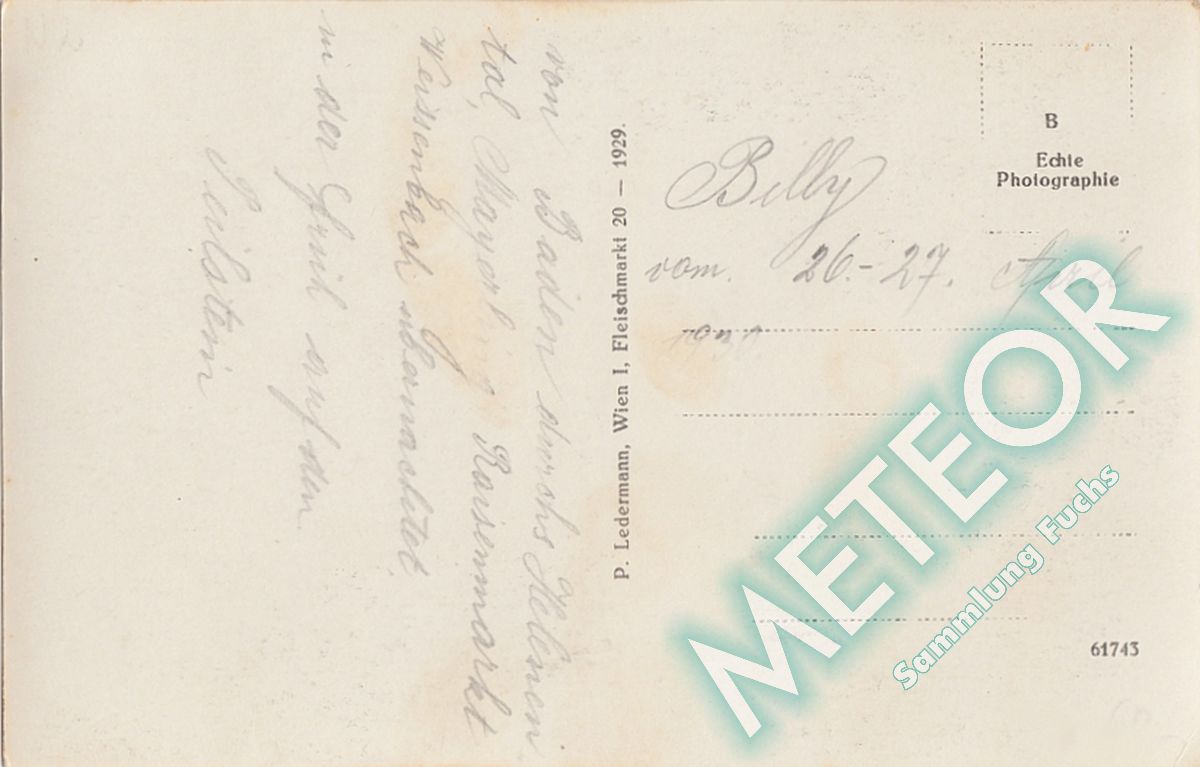 von Baden durchs Helenen
tal, Mayerling Raisenmarkt
Weissenbach übernachtet
in der Früh auf den
Peilstein
P. Ledermann, Wien I, Fleischmarkt 20 — 1929.
B
Echte
Photographie
Billy
vom. 26.-27. April
61743
METEOR
Sammlung Fuchs